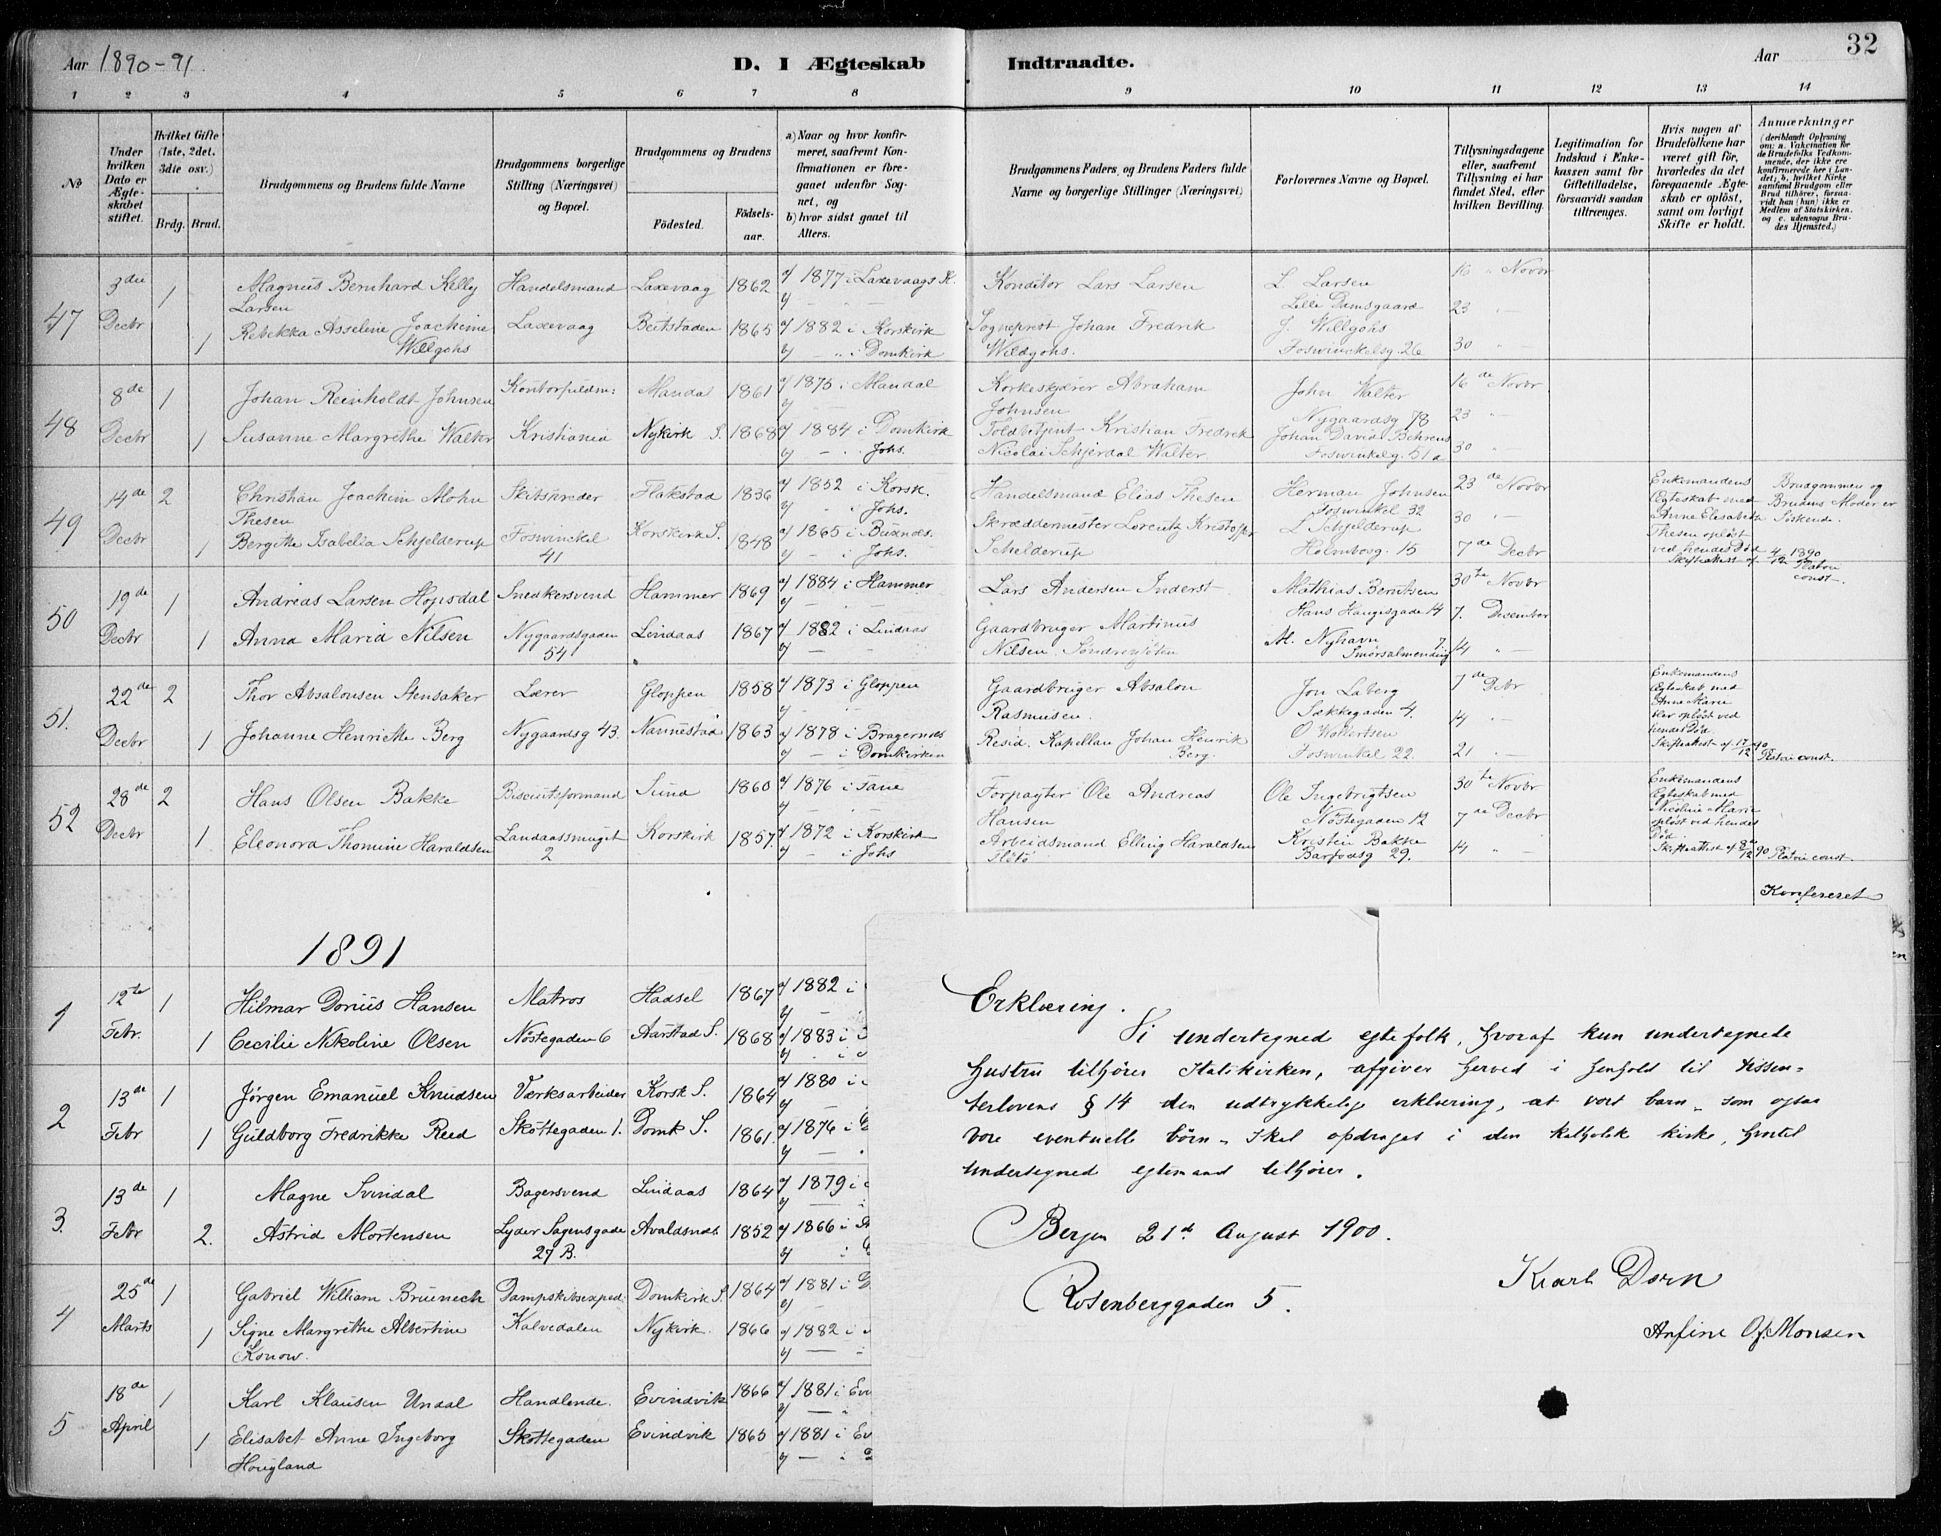 Aar 1890-91.
D. I Ægteskab Indtraadte.
Aar
32
1 2 3 4 5 6 7 8 9 10 11 12 13 14
No
Under hvilken Dato er Ægteskabet stiftet.
Hvilket Gifte (1ste, 2det, 3die osv.)
Brdg. Brud.
Brudgommens og Brudens fulde Navne
Brudgommens borgerlige Stilling (Næringsvei) og Bopæl.
Brudgommens og Brudens
Födested.
Födselsaar.
a) Naar og hvor konfirmeret, saafremt Konfirmationen er foregaaet udenfor Sognet, og
b) hvor sidst gaaet til Alters.
Brudgommens Faders, og Brudens Faders fulde Navne og borgerlige Stillinger (Næringsvei)
Forlovernes Navne og Bopæl.
Tillysningsdagene eller, saafremt Tillysning ei har fundet Sted, efter hvilken Bevilling.
Legitimation for Indskud i Enkekassen samt for Giftetilladelse, forsaavidt saadan tiltrænges.
Hvis nogen af Brudefolkene har været gift för, hvorledes da det foregaaende Ægteskab er oplöst, samt om lovligt Skifte er holdt.
Anmærkninger (deriblandt Oplysning om: a. Vakcination for de Brudefolks Vedkommende, der ikke ere konfirmerede her i Landet; b. hvilket Kirkesamfund Brudgom eller Brud tilhörer, forsaavidt han (hun) ikke er Medlem af Statskirken, og c. udensogns Brudes Hjemsted.)
47 3die Decbr 1 Magnus Bernhard Kelly Larsen Handelsmand Laxevaag 1862 a) 1877 i Laxevaags K. Konditor Lars Larsen L Larsen Lille Damsgaard 16 " Novbr
1 Rebekka Asseline Joachime Willgohs Laxevaag Beitstaden 1865 a) 1882 i Korskirk b) — " i Domkirk Sogneprest Johan Fredrik Wildgohs. J. Willgohs Foswinckelsg. 26 23 30
48 8de Decbr 1 Johan Reinholdt Johnsen Kontorfuldm: Mandal 1861 a) 1875 i Mandal Korkeskjærer Abraham Johnsen John Walter Nygaardsg 78 16de Novbr
1 Susanne Margrethe Walter Kristiania Nykirk S. 1868 a) 1884 i Domkirk b) — Johs. Toldbetjent Kristian Fredrik Nicolai Schjerdal Walter Johan David Behrens Foswinkelg. 51a 23 30
49 14de Decbr 2 Christian Joachim Mohn Thesen Skibsreder Flakstad 1836 a) 1852 i Korsk. b) Johs. Handelsmand Elias Thesen Herman Johnsen Foswinkel 32 23de Novbr
1 Bergitte Isabelia Schjelderup Foswinckel 41 Korskirk S. 1848 a) 1865 i Buxnds. b) — i Johs. Skræddermester Lorentz Kristoffer Schelderup L Schjelderup Holmberg. 15 30 7de Decbr
Enkemandens Ægteskab med Anne Elisabeth Thesen oplöst ved hendes Död Skifteattest af 4/12 1890 Platou const.
Brudgommen og Brudens Moder er Söskende.
50 19de Decbr 1 Andreas Larsen Hopsdal Snedkersvend Hammer 1869 a) 1884 i Hammer Lars Andersen Inderst Mathias Berntsen Hans Haugesgade 14 30te Novbr
1 Anna Maria Nilsen Nygaardsgaden 54 Lindaas 1867 a) 1882 i Lindaas Gaardbruger Martinus Nilsen M. Nyhavn Smörsalmending 7 7. December 14
51. 22de Decbr 2 Thor Absalonsen Stensaker Lærer Gloppen 1858 a) 1873 i Gloppen Gaardbruger Absalon Rasmusen. Jon Laberg Sækkegaden 4. 7de Dcbr
1 Johanne Henriette Berg Nygaardsg 43. Nannestad 1863 a) 1878 i Bragernds b) — i Domkirken Resid. Kapellan Johan Henrik Berg. O Woltertsen Foswinkel 22. 14 21
Enkemandens Ægteskab med Anne Marie blev oplöst ved hendes Död. Skifteattest af 17/12 90 Platou const.
52 28de Decbr 2 Hans Olsen Bakke Biscuitsformand Sund 1860 a) 1876 i Fane Forpagter Ole Andreas Hansen Ole Ingebrigtsen Nöstegaden 12 30te Novbr
1 Eleonora Thomine Haraldsen Landaassmuget 2 Korskirk 1857. a) 1872 i Korskirk b) — i Johs Arbeidsmand Elling Haraldsen Kristen Bakke Barfodsg 29. 7de Decbr 14
Enkemandens Ægteskab med Nicoline Marie oplöst ved hendes Död. Skifteattest af 8de/12 90 Platou const
Konfereret
1891
1 12te Febr. 1 Hilmar Dorius Hansen Matros Hadsel 1867 a) 1882 i
1 Cecilie Nikoline Olsen Nöstegaden 6 Aarstad S. 1868 a) 1883 i
2 13de Febr 1 Jörgen Emanuel Knudsen Værksarbeider Korsk S. 1864 a) 1880 i
1 Guldborg Fredrikke Reed Skottegaden 1. Domk S. 1861. a) 1876 i
3. 13de Febr 1 Magne Svindal Bagersvend Lindaas 1864 a) 1879 i
2. Astrid Mortensen Lyder Sagensgade 27 B. Avaldsnds 1852 a) 1866 i
4 25de Marts 1 Gabriel William Brunech Dampskibsexped: Domkirk S. 1864 a) 1881 i D
1 Signe Margrethe Albertine Konow. Kalvedalen Nykirk. 1866 a) 1882 i
5 18de April 1 Karl Klausen Undal Handlende. Evindvik 1866 a) 1881 i Evi
1 Elisabet Anne Ingeborg Hougland Skottegaden Evindvik 1865 a) 1881 i Ev
Erklæring.
Vi undertegnede egtefolk, hvoraf kun undertegnede
hustru tilhører Statskirken, afgiver herved i henhold til dissen-
terlovens § 14 den udtrykkelige erklæring, at vort barn – som ogsaa
vore eventuelle börn – skal opdrages i den katholske kirke, hvortil
undertegnede egtemand tilhører.
Bergen 21de August 1900.
Rosenberggaden 5.
Karl Dorn
Anfine Of. Monsen